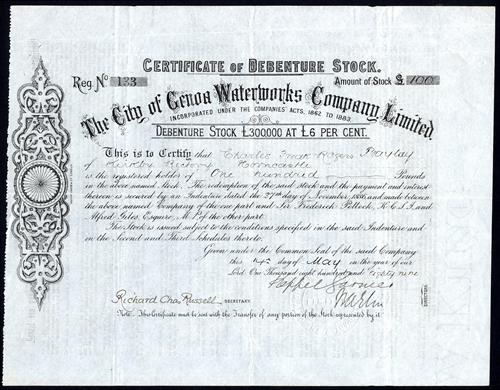 CERTIFICATE OF DEBENTURE STOCK.
Reg. No 133 Amount of Stock £ 100
The City of Genoa Waterworks Company Limited
INCORPORATED UNDER THE COMPANIES' ACTS, 1862 TO 1883.
DEBENTURE STOCK £300000 AT £6 PER CENT.
This is to Certify that Charles Rogers
of Kirkby Rectory Horncastle
is the registered holder of One hundred Pounds
in the above named Stock. The redemption of the said stock and the payment and interest
thereon is secured by an Indenture dated the 27th day of November 1886 and made between
the above named Company of the one part and Sir Frederick Pollock, K.C.S.I. and
Alfred Giles, Esquire, M.P. of the other part.
The Stock is issued subject to the conditions specified in the said Indenture and
on the Second and Third Schedules thereto.
Given under the Common Seal of the said Company
this 4th day of May in the year of our
Lord One Thousand eight hundred and Eighty nine
Richard Chas. Russell SECRETARY.
DIRECTORS.
Note. This Certificate must be sent with the Transfer of any portion of the Stock represented by it.